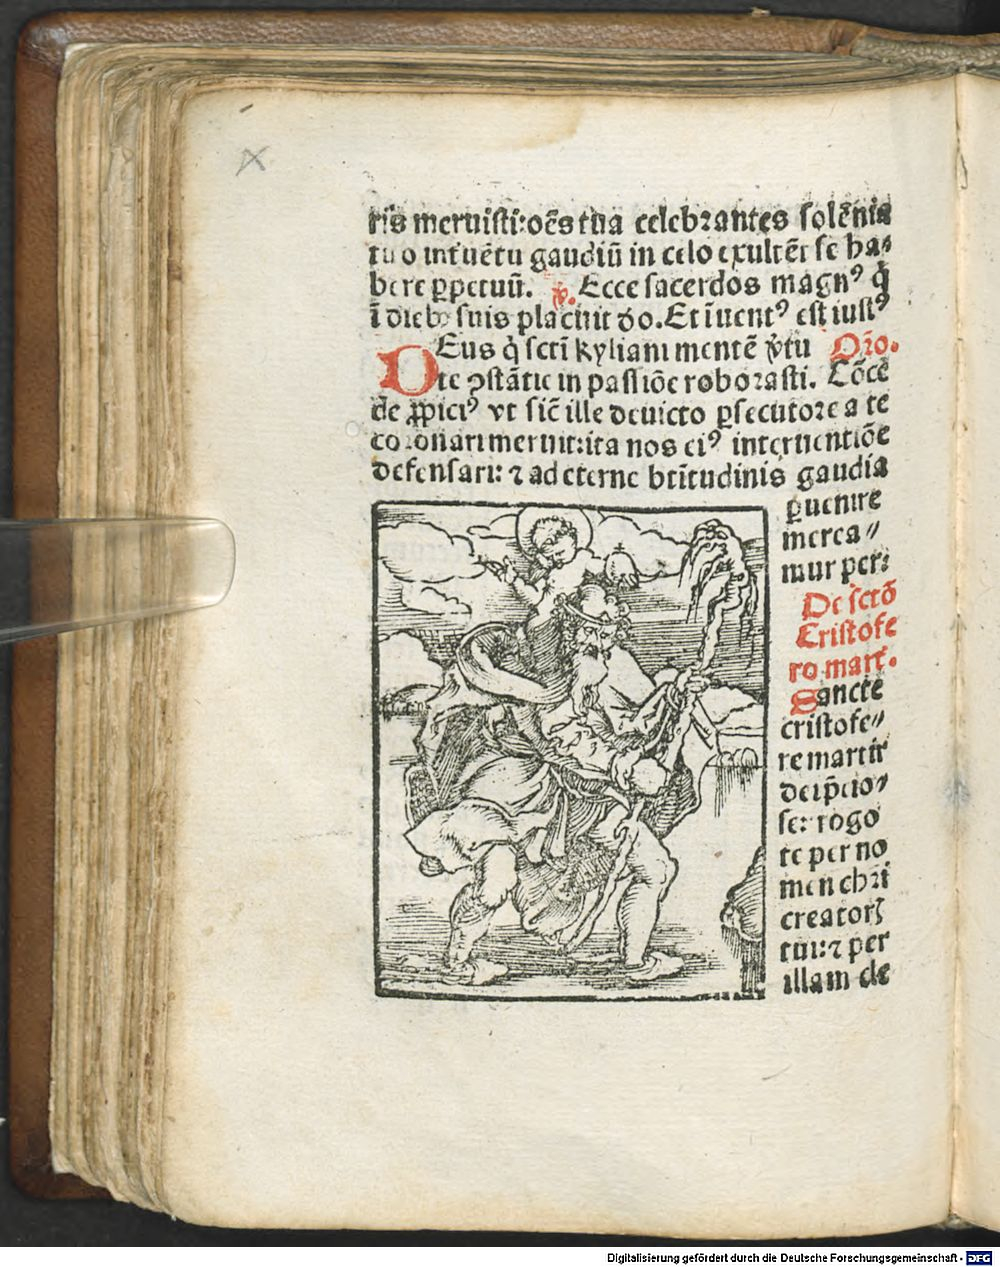 ris meruisti:oēs tua celebrantes solēnia
tuo intuētu gaudiū in celo exultēt se ha⸗
bere ꝑpetuū. ℣. Ecce sacerdos magnꝰ q̇
ī diebꝰ suis placuit do. Et īuentꝰ est iustꝰ
DEus q̇ scti kyliani mentē v̇tu Orō.
te ꝯstātie in passiōe roborasti. Cōce
de ꝓpiciꝰ vt sic̄ ille deuicto ꝑsecutore a te
coronari meruit:ita nos eiꝰ interuentiōe
defensari: ⁊ ad eterne btītudinis gaudia
ꝑuenire
merea⸗
mur per:
De sctō
Cristofe
ro mart̄.
Sancte
cristofe⸗
re martir
dei p̄cio⸗
se: rogo
te per no
men chr̄i
creatorꝭ
tui:⁊ per
illam de
Digitalisierung gefördert durch die Deutsche Forschungsgemeinschaft - DFG